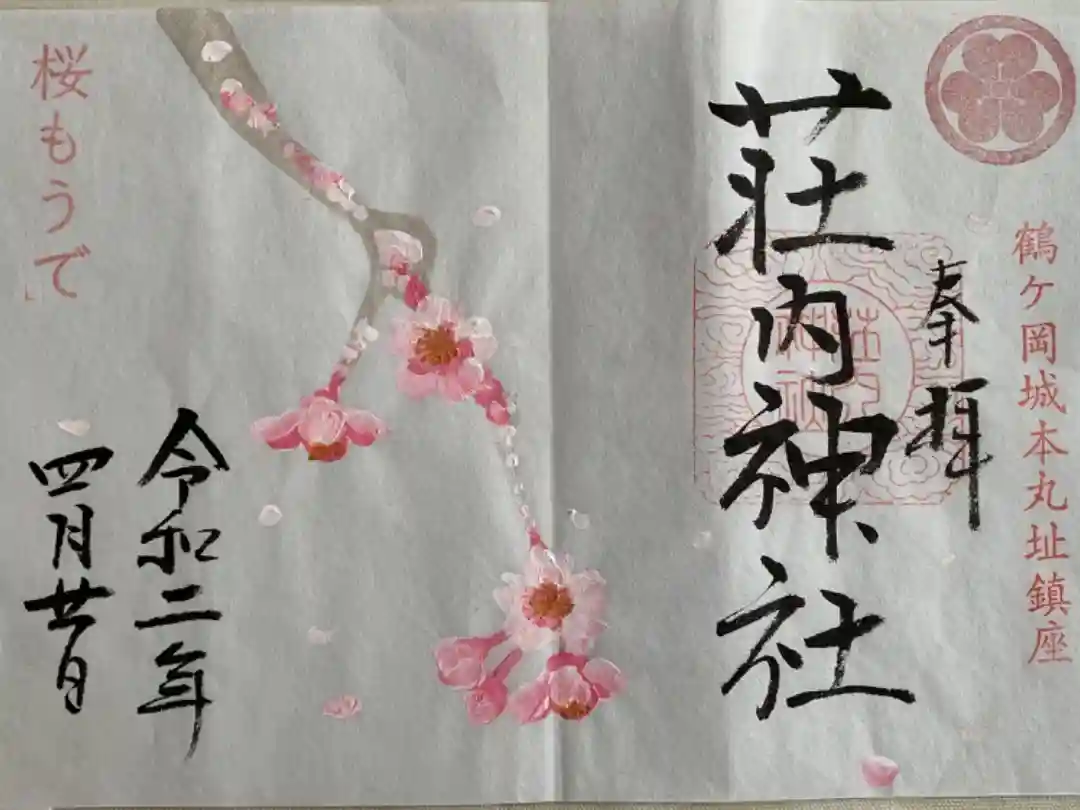 鶴ヶ岡城本丸址鎮座
奉拝
荘内神社
荘内神社
桜もうで
令和二年
四月廿日